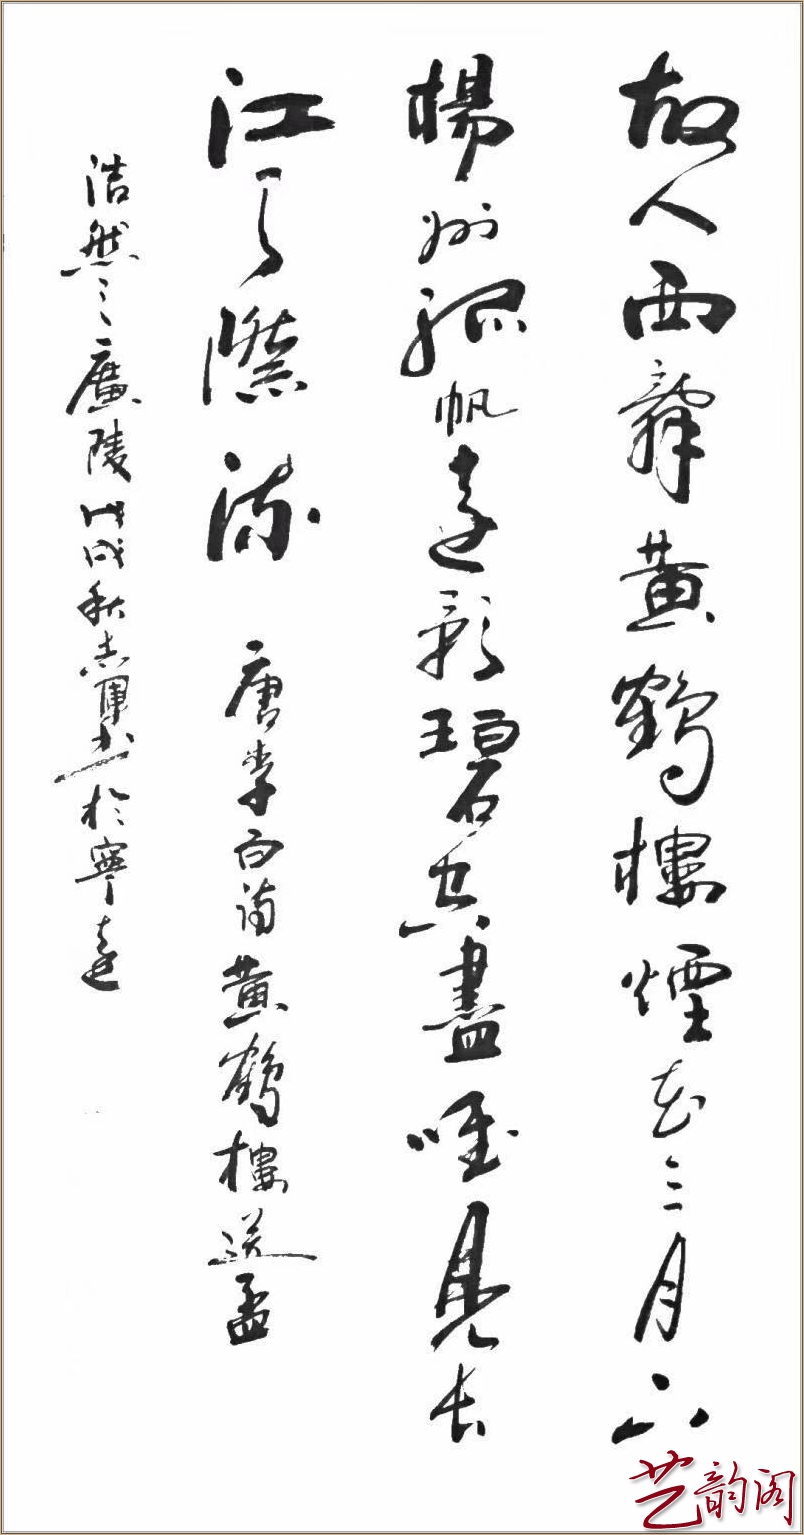 故人西辭黄鶴樓煙花三月下
楊州孤帆遠影碧空盡唯見長
江天際流 唐李白詩黄鶴樓送孟
浩然之廣陵戊戌秋志軍书於寧遠
艺韵阁